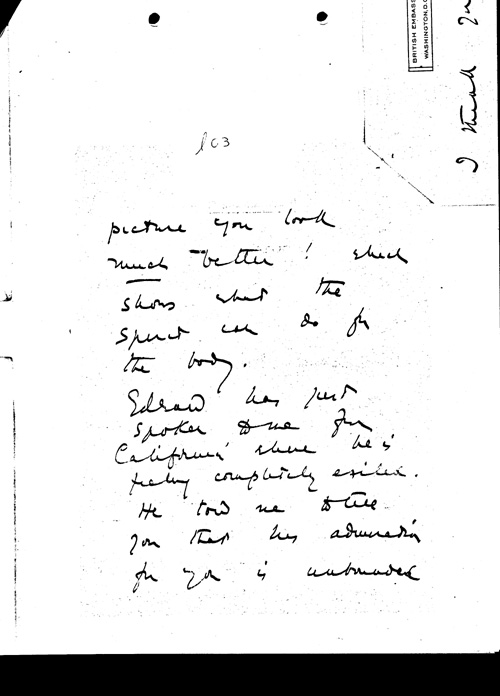 BRITISH EMBASSY
WASHINGTON, D.C.
I
103
picture you look
much better! which
shows what the
spirit can do for
the body.
Edward has just
spoken to me from
California where he is
feeling completely exiled.
He told me to tell
you that his admiration
for you is unbounded